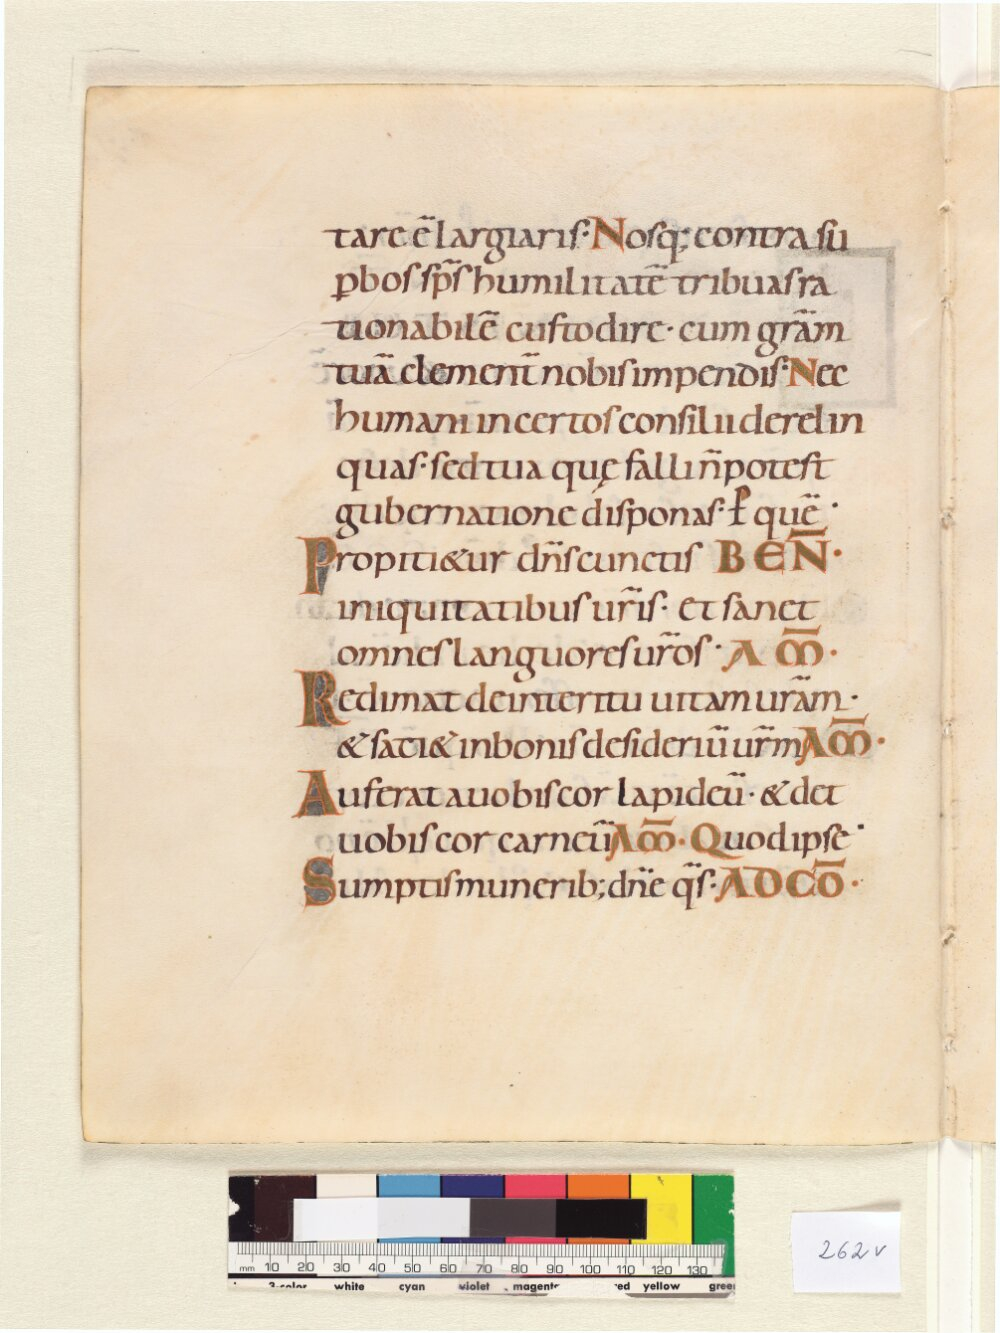 tare ē largiaris· Nosq; contra su
ꝑbos sp̄s humilitatē tribuas ra
tionabilē custodire· cum grām
tuā clement̄ nobis impendis· Nec
humani incertos consilii derelin
quas· sed tua quę falli n̄ potest
gubernatione disponas· P̄ quē·
Propitietur dn̄s cunctis BEN̄·
iniquitatibus ur̄is· et sanet
omnes languores ur̄os· AM̄·
Redimat de interitu uitam urām·
& satiet in bonis desideriū ur̄m AM̄·
Auferat a uobis cor lapideū· & det
uobis cor carneū AM̄· Quod ipse·
Sumptis munerib; dn̄e q̄s· AD CŌ·
262v
mm 10 20 30 40 50 60 70 80 90 100 110 120 130
3-color white cyan violet magenta red yellow green